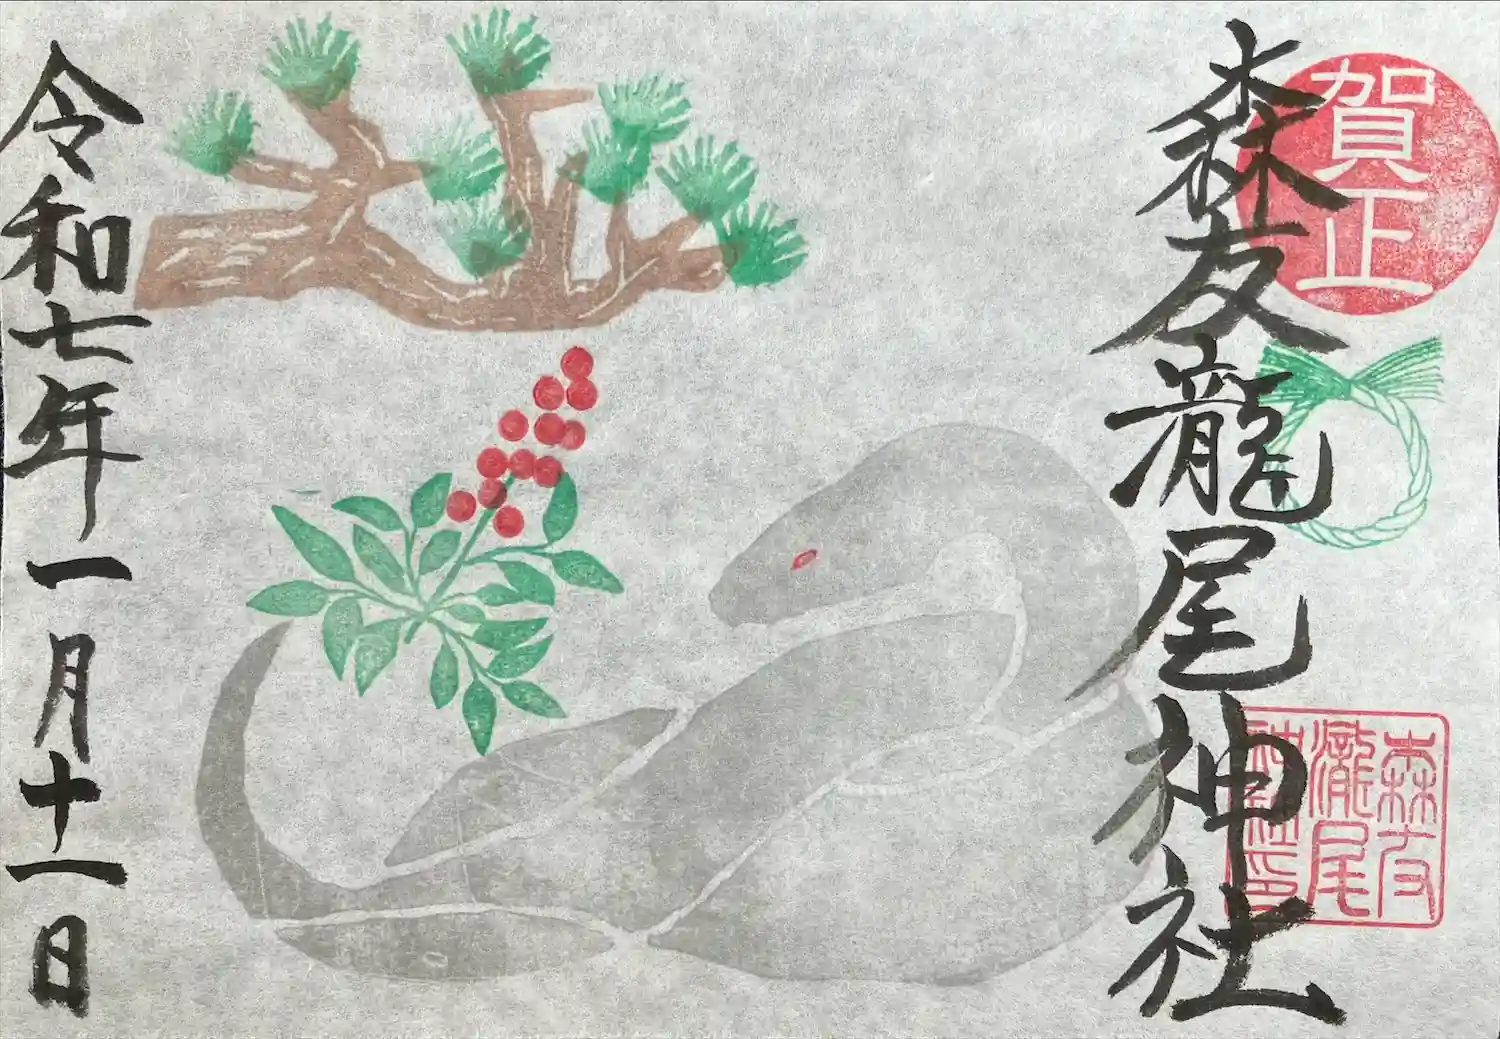 賀正
森友龍尾神社
森友
瀧尾
神社印
令和七年一月十一日